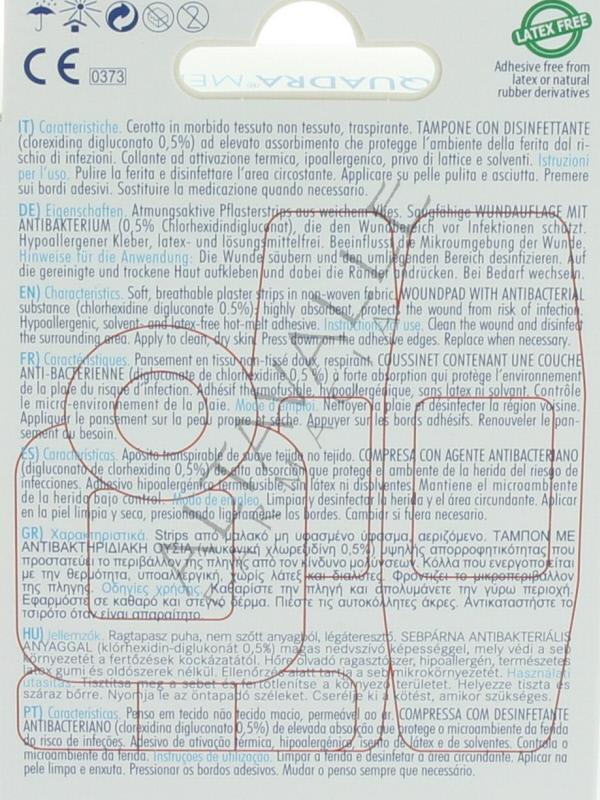 LATEX FREE
CE 0373
QUADRA MED
Adhesive free from
latex or natural
rubber derivatives
IT) Caratteristiche. Cerotto in morbido tessuto non tessuto, traspirante. TAMPONE CON DISINFETTANTE
(clorexidina digluconato 0,5%) ad elevato assorbimento che protegge l'ambiente della ferita dal ri-
schio di infezioni. Collante ad attivazione termica, ipoallergenico, privo di lattice e solventi. Istruzioni
per l'uso. Pulire la ferita e disinfettare l'area circostante. Applicare su pelle pulita e asciutta. Premere
sui bordi adesivi. Sostituire la medicazione quando necessario.
DE) Eigenschaften. Atmungsaktive Pflasterstrips aus weichem Vlies. Saugfähige WUNDAUFLAGE MIT
ANTIBAKTERIUM (0,5% Chlorhexidindigluconat), die den Wundbereich vor Infektionen schützt.
Hypoallergener Kleber, latex- und lösungsmittelfrei. Beeinflusst die Mikroumgebung der Wunde.
Hinweise für die Anwendung: Die Wunde säubern und umliegenden Bereich desinfizieren. Auf
die gereinigte und trockene Haut aufkleben und dabei die Ränder andrücken. Bei Bedarf wechseln.
EN) Characteristics. Soft, breathable plaster strips in non woven fabric. WOUNDPAD WITH ANTIBACTERIAL
substance (chlorhexidine digluconate 0.5%) highly absorbent, protects the wound from risk of infection.
Hypoallergenic, solvent and latex-free hot-melt adhesive. Instructions of use. Clean the wound and disinfect
the surrounding area. Apply to clean, dry skin. Press down the adhesive edges. Replace when necessary.
FR) Caractéristiques. Pansement en tissu non-tissé doux, respirant. COUSSINET CONTENANT UNE COUCHE
ANTI-BACTERIENNE (digluconate de chlorhexidine 0,5 %) à forte absorption qui protège l'environnement
de la plaie du risque d'infection. Adhésif thermofusible, hypoallergénique, sans latex ni solvant. Contrôle
le micro-environnement de la plaie. Mode d'emploi. Nettoyer la plaie et désinfecter la région voisine.
Appliquer le pansement sur la peau propre et sèche. Appuyer sur les bords adhésifs. Renouveler le pan-
sement au besoin.
ES) Características. Aposito transpirable de suave tejido no tejido. COMPRESA CON AGENTE ANTIBACTERIANO
(digluconato de clorhexidina 0,5%) de alta absorción que protege el ambiente de la herida del riesgo de
infecciones. Adhesivo hipoalergénico termofusible sin látex ni disolventes. Mantiene el microambiente
de la herida bajo control. Modo de empleo. Limpiar y desinfectar la herida y el área circundante. Aplicar
en la piel limpia y seca, presionando ligeramente los bordes. Cambiar si fuera necesario.
GR) Χαρακτηριστικά. Strips από μαλακό μη υφασμένο ύφασμα, αεριζόμενο. ΤΑΜΠΟΝ ΜΕ
ΑΝΤΙΒΑΚΤΗΡΙΔΙΑΚΗ ΟΥΣΙΑ (γλυκονική χλωρεξιδίνη 0,5%) υψηλής απορροφητικότητας που
προστατεύει το περιβάλλον της πληγής από τον κίνδυνο μολύνσεων. Κόλλα που ενεργοποιείται
με την θερμότητα, υποαλλεργική, χωρίς λάτεξ και διαλύτες. Φροντίζει το μικροπεριβάλλον
της πληγής. Οδηγίες χρήσης. Καθαρίστε την πληγή και απολυμάνετε την γύρω περιοχή.
Εφαρμόστε σε καθαρό και στεγνό δέρμα. Πιέστε τις αυτοκόλλητες άκρες. Αντικαταστήστε το
τσιρότο όταν είναι απαραίτητο.
HU) Jellemzők. Ragtapasz puha, nem szőtt anyagból, légáteresztő. SEBPÁRNA ANTIBAKTERIÁLIS
ANYAGGAL (klórhexidin-diglukonát 0,5%) magas nedvszívó képességgel, mely védi a seb
környezetét a fertőzések kockázatától. Hőre olvadó ragasztószer, hipoallergén, természetes
latex gumi és oldószerek nélkül. Ellenőrzés alatt tartja a seb mikrokörnyezetét. Használati
utasítás. Tisztítsa meg a sebet és fertőtlenítse a környező területet. Helyezze tiszta és
száraz bőrre. Nyomja le az öntapadó széleket. Cserélje ki a kötést, amikor szükséges.
PT) Características. Penso em tecido não tecido macio, permeável ao ar. COMPRESSA COM DESINFETANTE
ANTIBACTERIANO (clorexidina digluconato 0,5%) de elevada absorção que protege o microambiente da ferida
do risco de infeções. Adesivo de ativação térmica, hipoalergénico, isento de látex e de solventes. Controla o
microambiente da ferida. Instruções de utilização. Limpar a ferida e desinfetar a área circundante. Aplicar na
pele limpa e enxuta. Pressionar os bordos adesivos. Mudar o penso sempre que necessário.
ALTAVALLE
FARMACIA